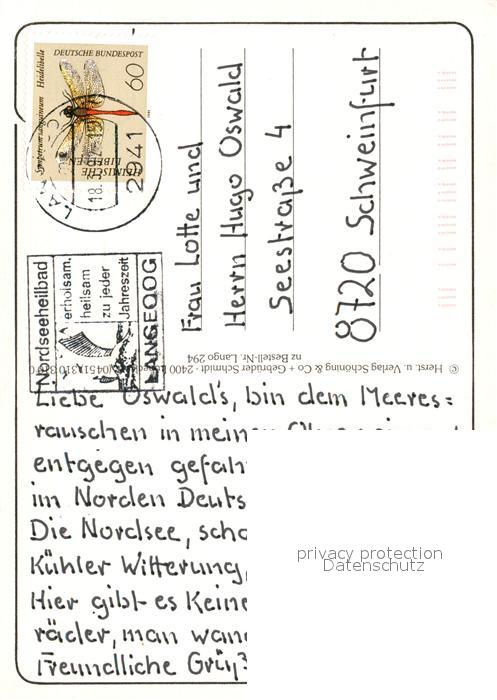 DEUTSCHE BUNDESPOST
Heidelibelle
Sympetrum sanguineum
60
HEIMISCHE
LIBELLEN
2941
18.
Nordseeheilbad
erholsam.
heilsam
zu jeder
Jahreszeit
LANGEOOG
Frau Lotte und
Herrn Hugo Oswald
Seestraße 4
8720 Schweinfurt
© Herst. u. Verlag Schöning & Co + Gebrüder Schmidt · 2400
nz Bestell-Nr. Lango 294
Liebe Oswald's, bin dem Meeres=
rauschen in meinen
entgegen gefah
im Norden Deuts
Die Nordsee, scho
Kühler Witterung,
Hier gibt es Keine
räder, man wand
Freundliche Grüß
privacy protection
Datenschutz